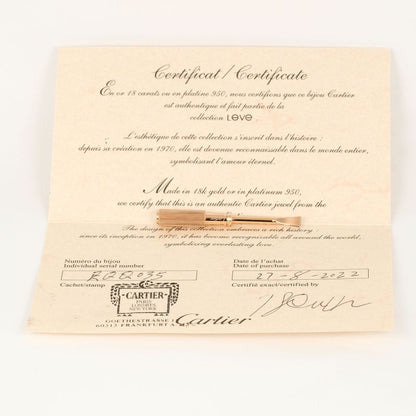 Certificat / Certificate
En or 18 carats ou en platine 950, nous certifions que ce bijou Cartier
est authentique et fait partie de la
collection LOVE.
L'esthétique de cette collection s'inscrit dans l'histoire :
depuis sa création en 1970, elle est devenue reconnaissable dans le monde entier,
symbolisant l'amour éternel.
Made in 18k gold or in platinum 950,
we certify that this is an authentic Cartier jewel from the
The design of this collection embraces a rich history :
since its inception in 1970, it has become recognizable all around the world,
symbolizing everlasting love.
Numéro du bijou
Individual serial number
Date de l'achat
Date of purchase
27-8-2022
Cachet/stamp
Certifié exact/certified by
CARTIER
PARIS
LONDRES
NEW YORK
GOETHESTRASSE
60313 FRANKFURT
Cartier